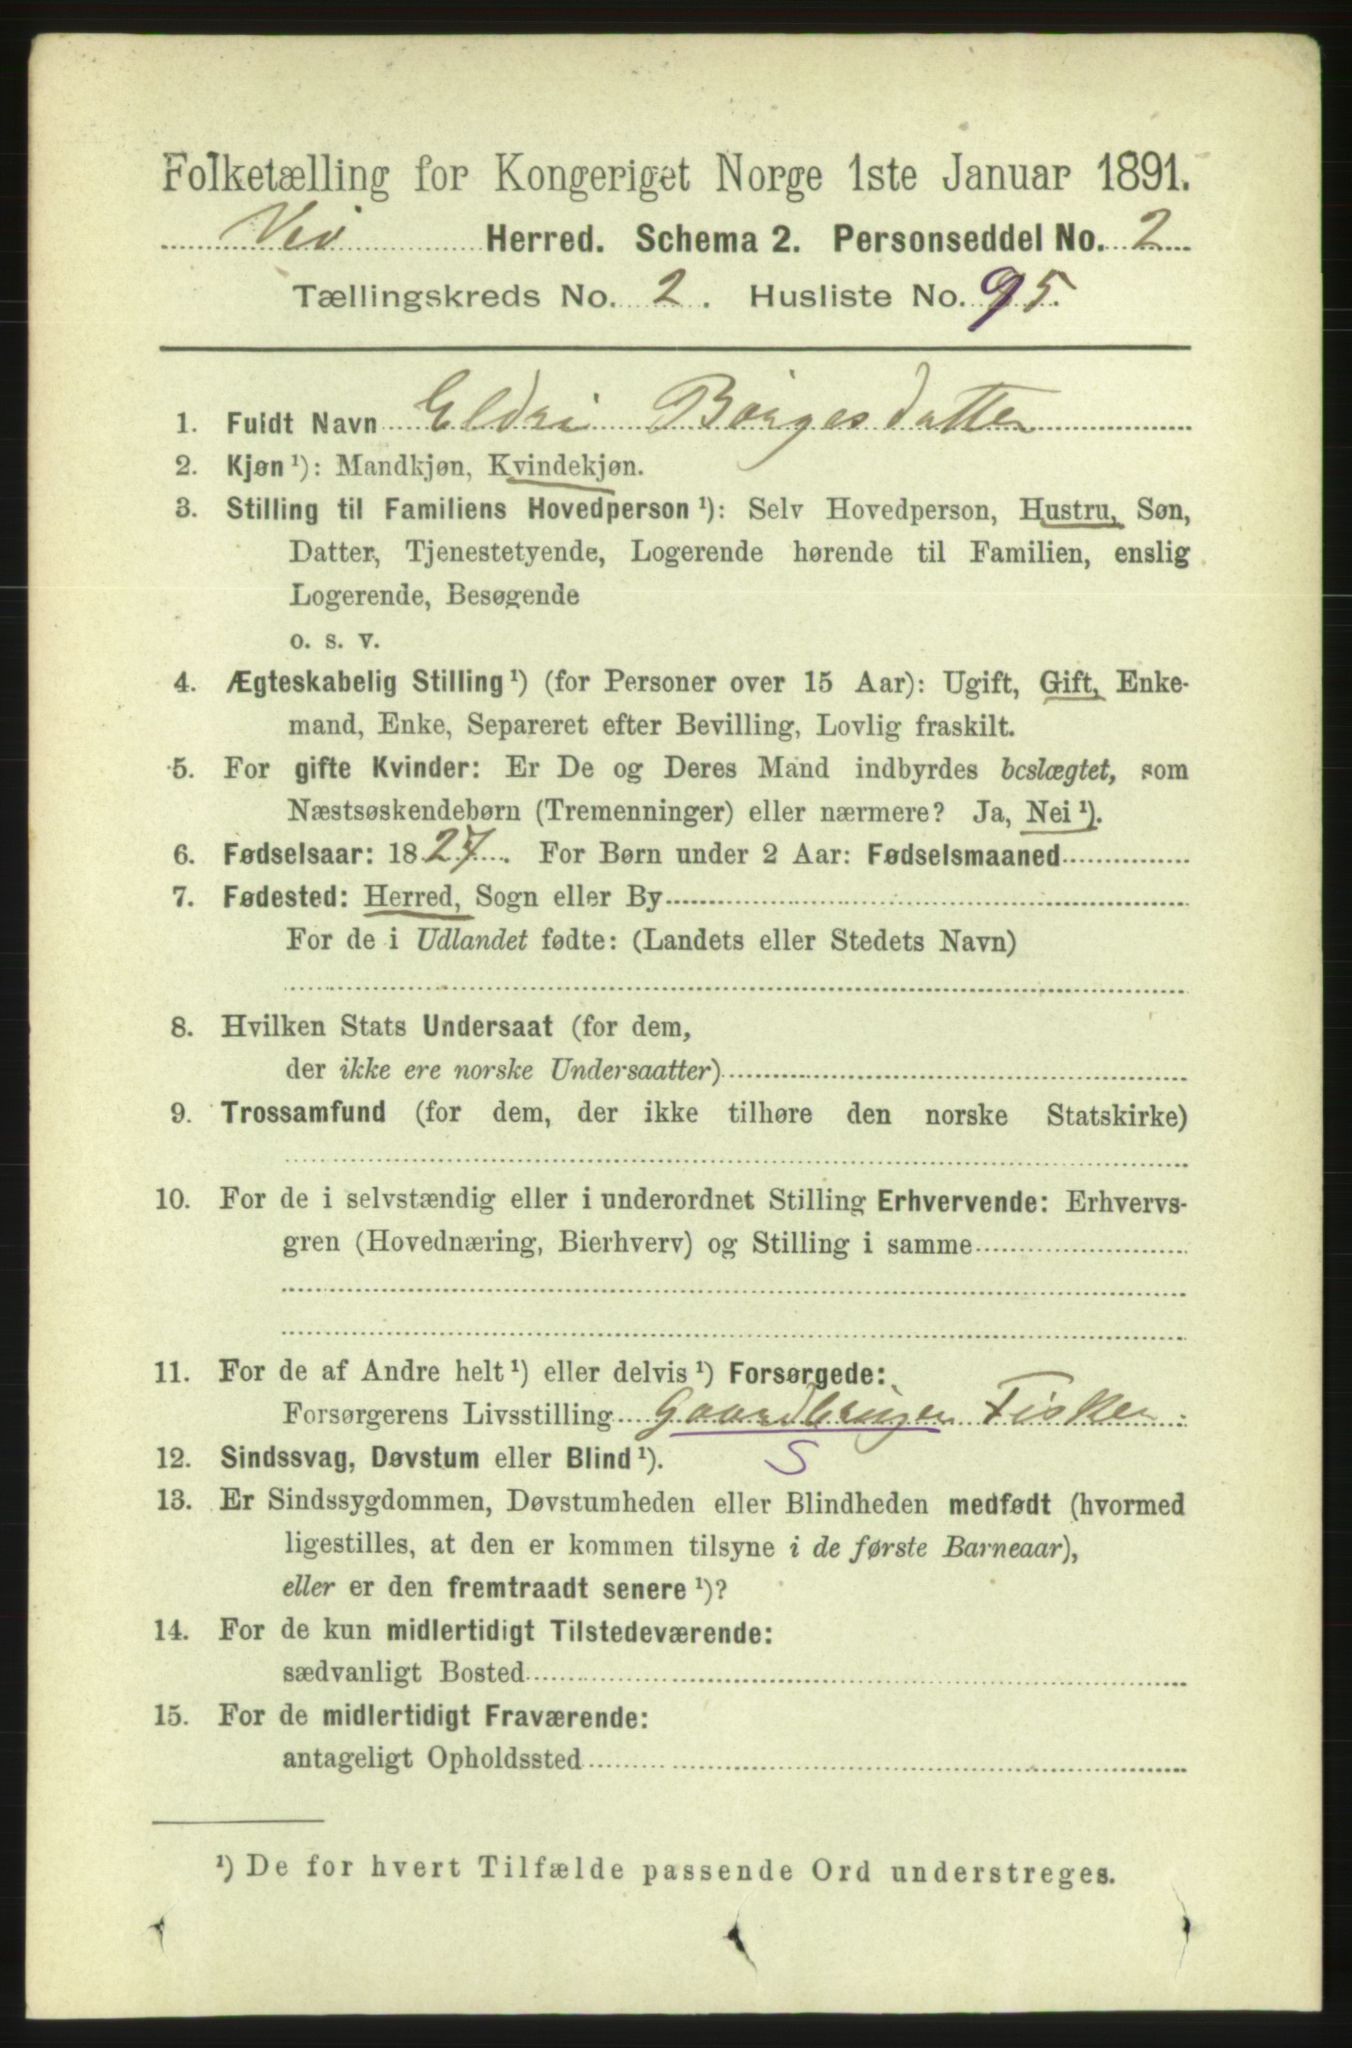 Folketælling for Kongeriget Norge 1ste Januar 1891.
Veø Herred. Schema 2. Personseddel No. 2
Tællingskreds No. 2. Husliste No. 95.
1. Fuldt Navn Eldri Børgesdatter
2. Kjøn ¹): Mandkjøn, Kvindekjøn.
3. Stilling til Familiens Hovedperson ¹): Selv Hovedperson, Hustru, Søn,
Datter, Tjenestetyende, Logerende hørende til Familien, enslig
Logerende, Besøgende
o. s. v.
4. Ægteskabelig Stilling ¹) (for Personer over 15 Aar): Ugift, Gift, Enke-
mand, Enke, Separeret efter Bevilling, Lovlig fraskilt.
5. For gifte Kvinder: Er De og Deres Mand indbyrdes beslægtet, som
Næstsøskendebørn (Tremenninger) eller nærmere? Ja, Nei ¹).
6. Fødselsaar: 1827. For Børn under 2 Aar: Fødselsmaaned
7. Fødested: Herred, Sogn eller By
For de i Udlandet fødte: (Landets eller Stedets Navn)
8. Hvilken Stats Undersaat (for dem,
der ikke ere norske Undersaatter)
9. Trossamfund (for dem, der ikke tilhøre den norske Statskirke)
10. For de i selvstændig eller i underordnet Stilling Erhvervende: Erhvervs-
gren (Hovednæring, Bierhverv) og Stilling i samme
11. For de af Andre helt ¹) eller delvis ¹) Forsørgede:
Forsørgerens Livsstilling Gaardbruger Fisker
S
12. Sindssvag, Døvstum eller Blind ¹).
13. Er Sindssygdommen, Døvstumheden eller Blindheden medfødt (hvormed
ligestilles, at den er kommen tilsyne i de første Barneaar),
eller er den fremtraadt senere ¹)?
14. For de kun midlertidigt Tilstedeværende:
sædvanligt Bosted
15. For de midlertidigt Fraværende:
antageligt Opholdssted
¹) De for hvert Tilfælde passende Ord understreges.